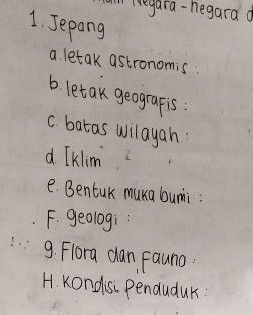 Negara - negara
1. Jepang
a. letak astronomis :
b. letak geografis :
c. batas wilayah :
d. Iklim :
e. Bentuk muka bumi :
F. geologi :
g. Flora dan Fauna :
H. Kondisi Penduduk :